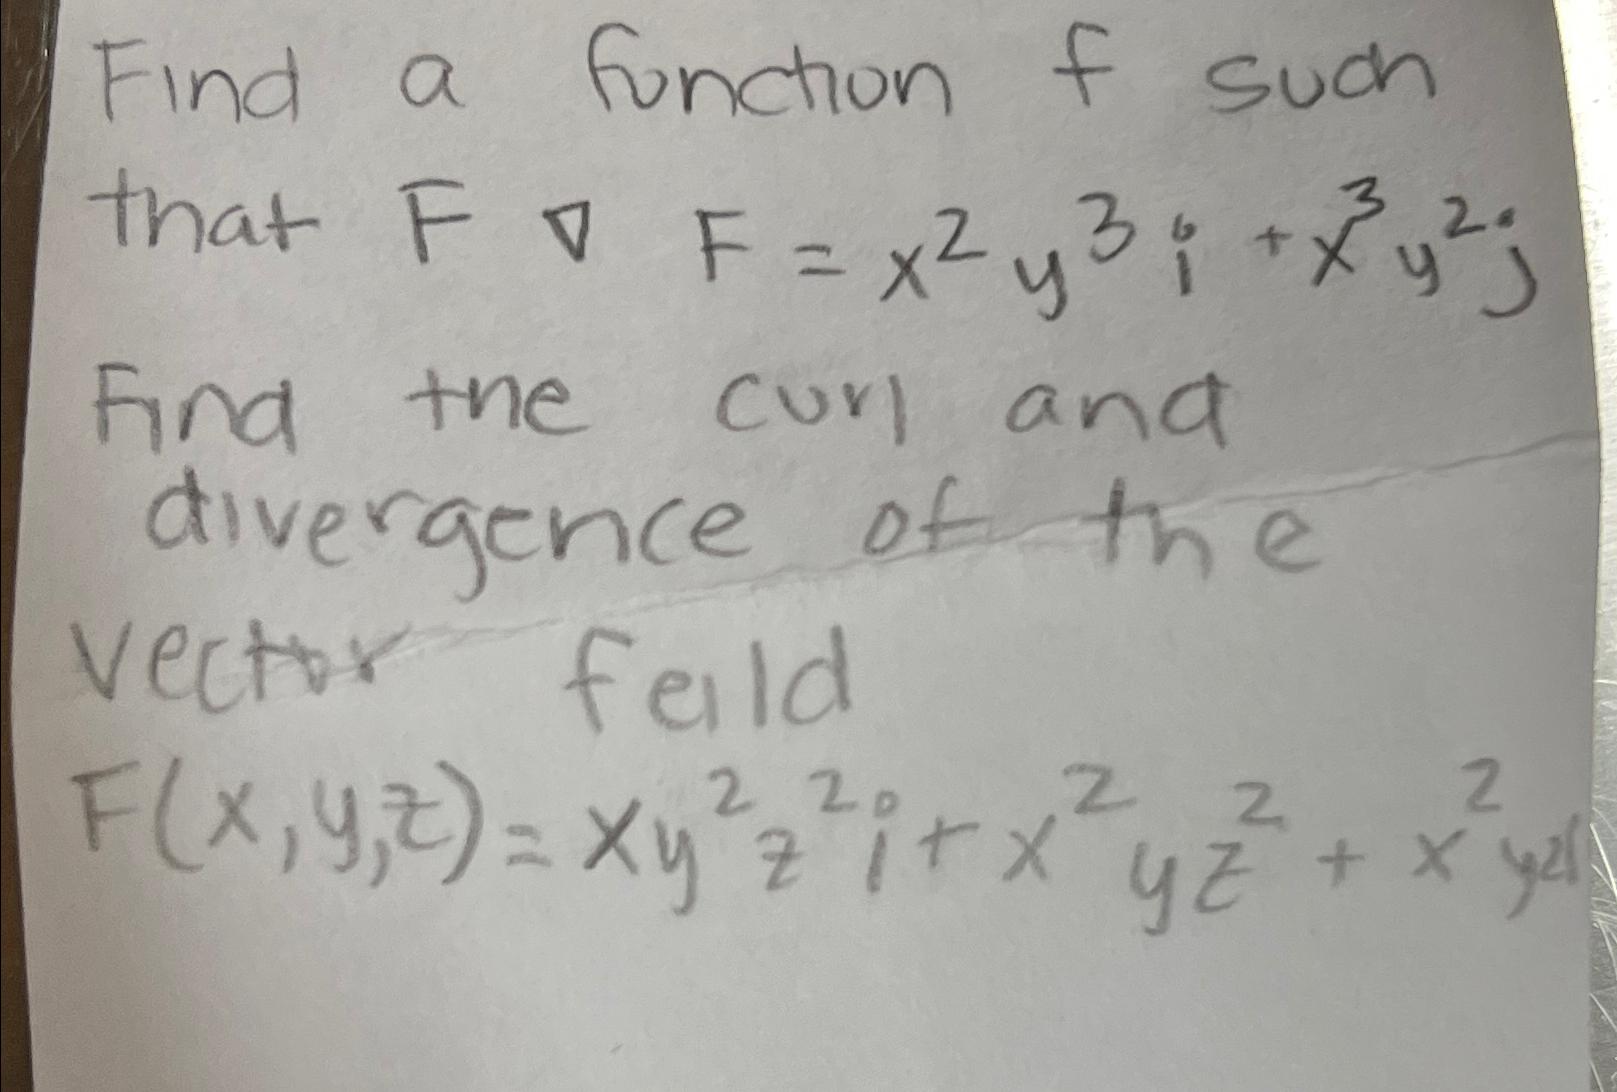 Find a function f such
that F ∇ F = x² y³ i + x³ y² j
Find the curl and
divergence of the
vector feild
F(x,y,z) = xy² z² i + x² yz² + x² yz